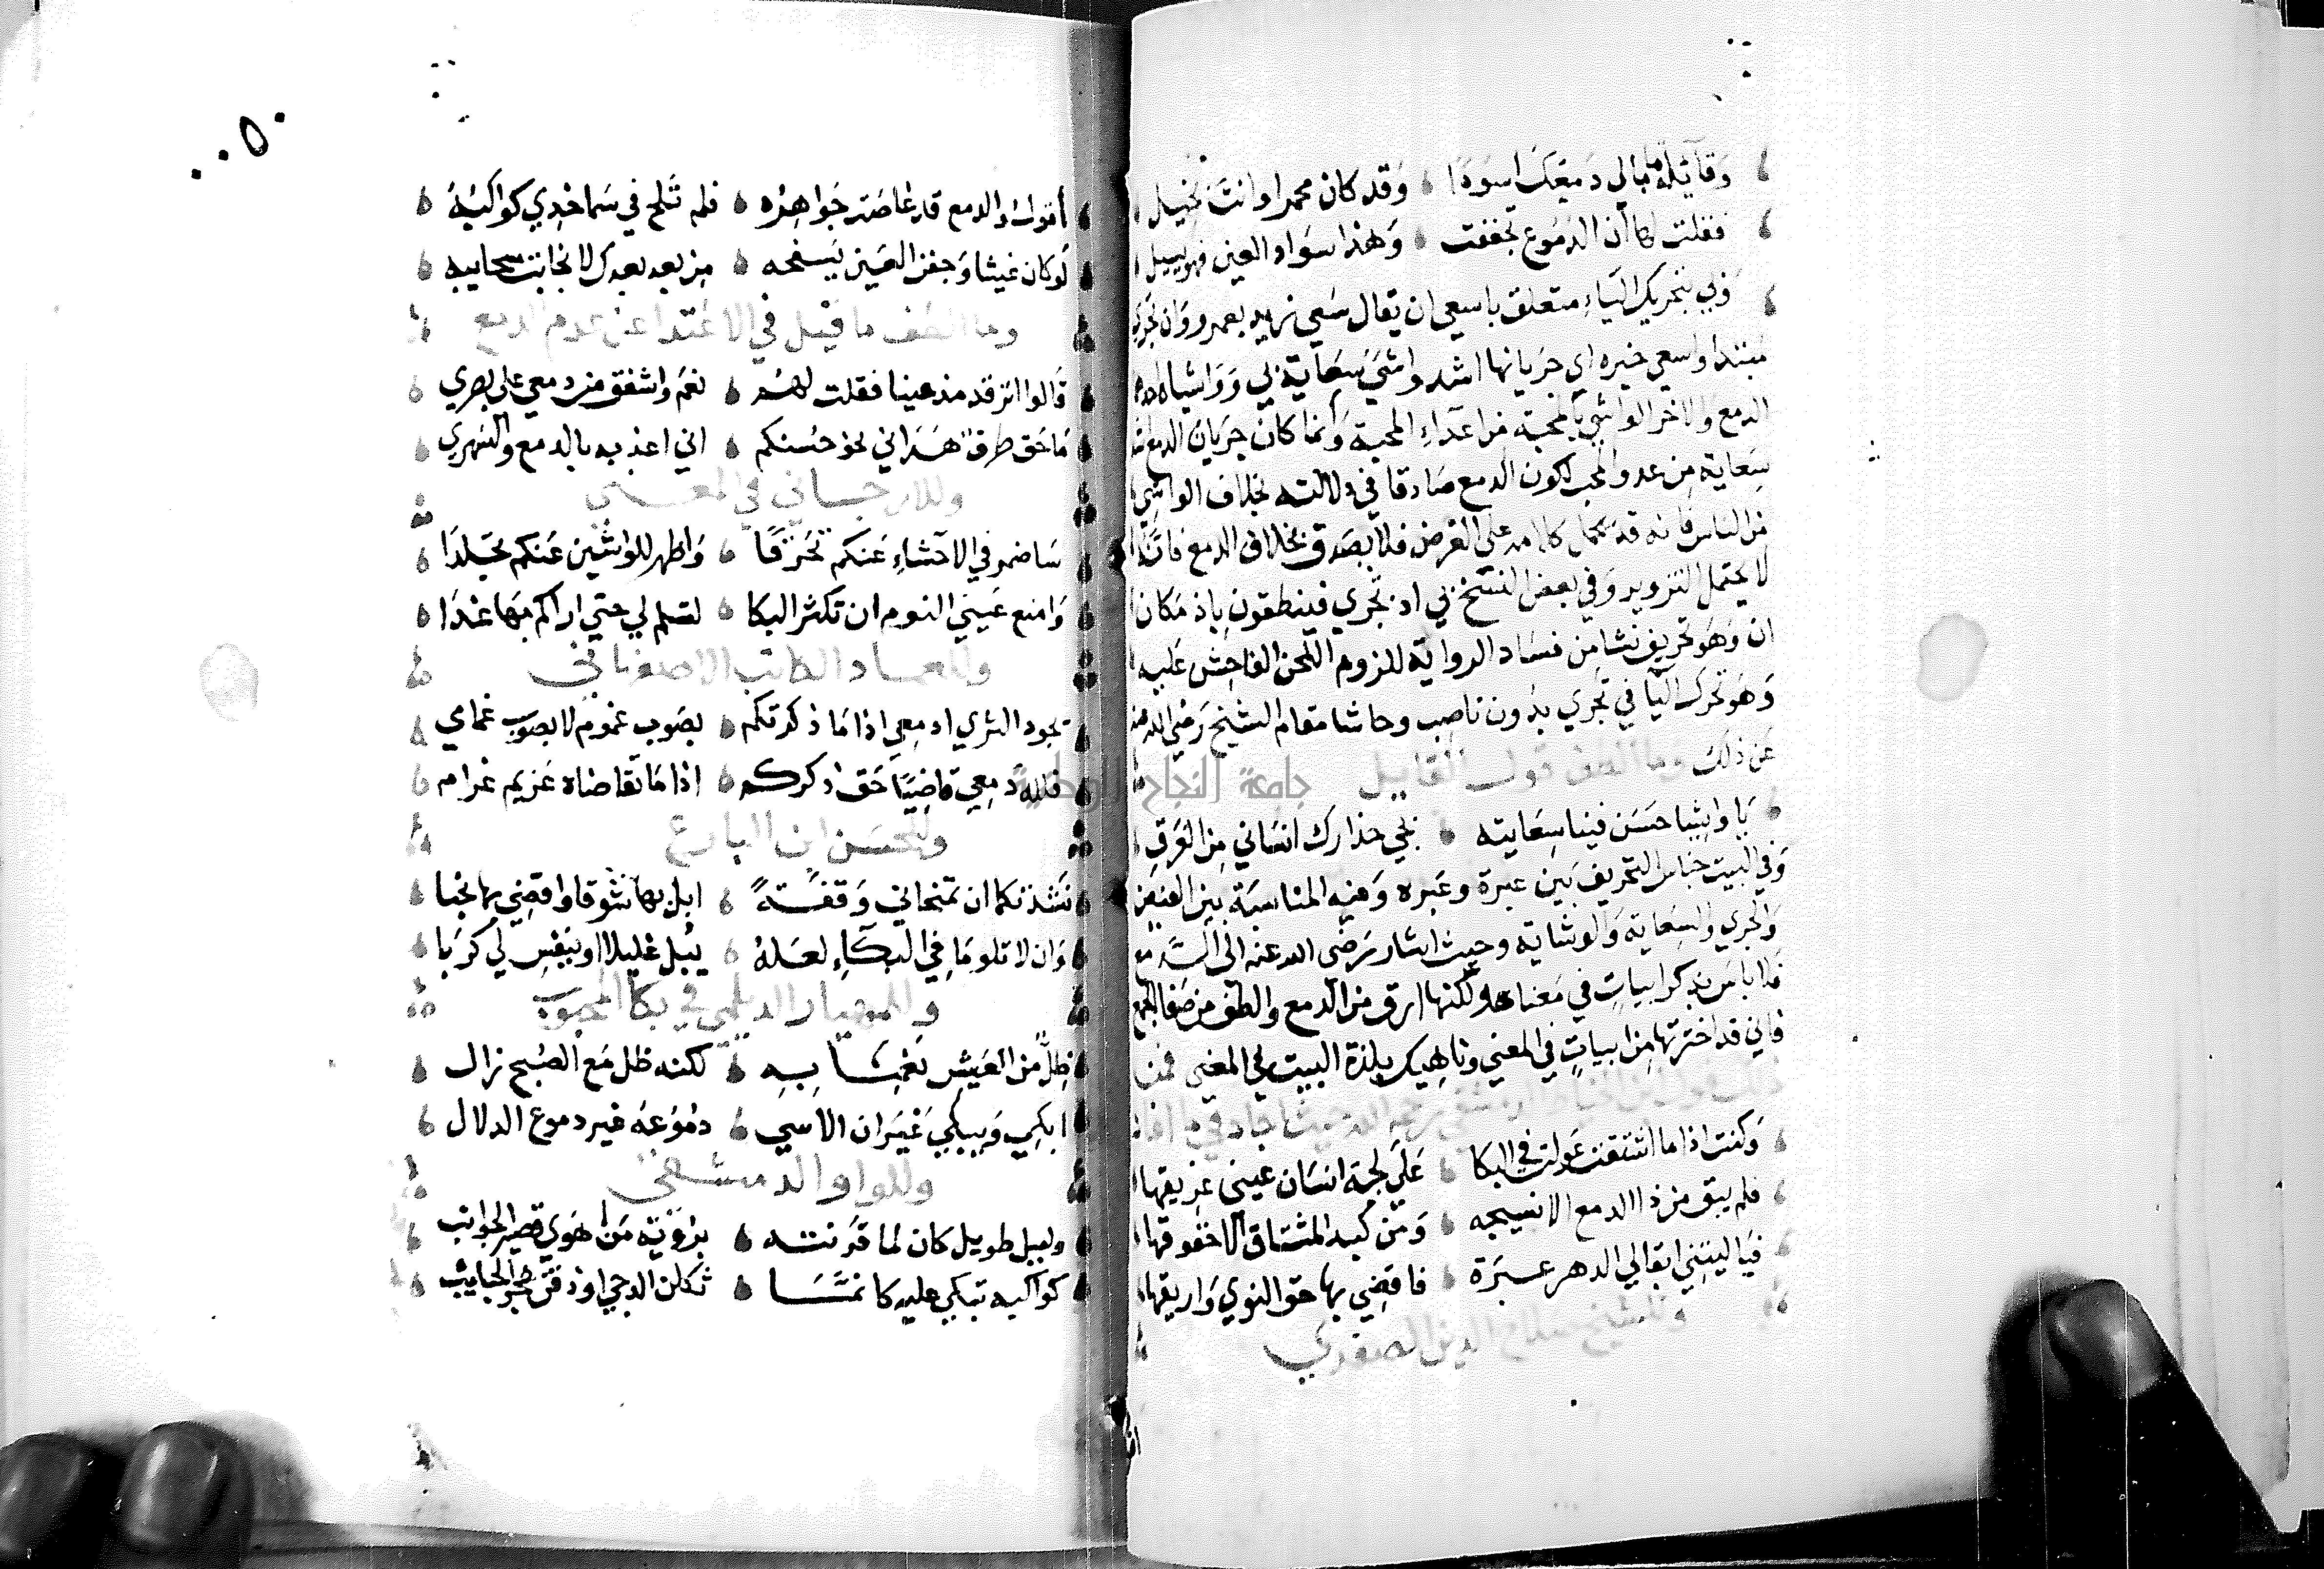 وَقائلة ما بالي دَمعك اسوَدَا وَقد كان محمرا وانتَ نحيل
فقلت لها ان الدمُوع تجففت وَهذا سَواد العين فهو يسيل
وَبي بتحريك الياء متعلق باسعي ان يقال سَعي زيد بعمرو وَان
مبتدا واسعي خبره اي جريانها اشد واشي سعَاية بي وَوَاشياه
الدمع وَالاخر الواشي بالمحبة من اعداء المحبة وَانما كان جريان الدمع
سِعاية مِن عدو المحب لكون الدمع صَادقا في دلالته بخلاف الواشي
من الناس فانه قد يحمل كلامه على الغرض فلا يصَدق بخلاف الدمع فانه
لا يحتمل التزوير وَفي بعض النسخ بي اذ تجري فينطقون باذ مكان
ان وَهوَ تحريف نشا مِن فسَاد الرواية للزوم اللحن الفاحِش عَليه
وَهوَ تحرك اليا في تجري بدُون ناصِب وحاشا مقام الشيخ رَضي الله
عَن ذلك وما الطف قول القايل
يَا واشِيا حسَن فينا سِعَايته نجي حذارك انسَاني مِن الغرَقِ
وَفي البيت جناس التحريف بَين عبرة وعَبره وَفيه المناسبَة بين
وَالجري والسعاية وَالوشاية وحيث اشار رَضى الله عنه الى الدمع
فلا باس بذكر ابياتٍ في مَعناه ولكنها ارق من الدمع والطف من
فاني قد اخترتها مِن ابياتٍ في المعني وناهِيك بلذة البيت في المغنى فمن
وَكنت اذا ما اشتقت عَولت في البكا عَلَى لجة انسَان عيني غريقها
فلم يبق من ذا الدمع الا نسيجه وَمن كبد المشتاق الا خفوقها
فيَا ليتني ابقا لي الدهر عبرَة فاقضِي بها حق النوي وَاريقها
وللشيخ صلاح الدين الصفدي
أقول والدمع قد غاصَت جَواهِرُه فلم تَلح في سَما خدي كواكبُهُ
لَو كان غيثا وَجفن العَين يَسفحه مِن بعد بعدك لانجابت سحايبه
وما الطف ما قيل في الاعتذار عن عدم الدمع
قَالوا اترقد مذ غبنا فقلت لهُم نعَم واشفق من دمعي على بصري
مَا حَق طرف هَدَاني نحو حُسنكم اني اعذبه بالدمع والسَهري
وللارجاني في المعنى
سَاضمر في الاحشاءِ عَنكم تَحَرقًا وَاظهر للواشين عَنكم تجلدَا
وَامنع عَيني النوم ان تكثر البكا لتسلم لي حتي اراكم بهَا غدَا
وللعماد الكاتب الاصفهاني
تجود الثري ادمعي اذا مَا ذكرتكم بصَوب غموم لا بصَوب غمامي
فلله دمعي قاضِيًا حَق ذكركم اذا مَا تقاضاه غَريم غرام
وللحسَن ابن البارع
نَشدتكما ان تمنحاني وَقفَةً ابل بها شوقا واقضِي بها نحبا
وَان لا تلومَا في البكَاءِ لعَلهُ يبُل غليلا او ينفِس لي كربَا
وللمهيار الديلمي في بكا المحبوب
ظِلٌ من العَيشِ نَعِمنَا بِهِ لكنه ظل مَع الصُبح زال
ابكي وَيبكي غَيرَ ان الاسي دمُوعهُ غير دموع الدلال
وللواوا الدمشقي
وليل طويل كان لما قرَنته برؤية مَن اهوَي قصير الجوانب
كواكبه تبكي عليه كانمَّا ثكلن الدجي او ذقن هجر الحبايب